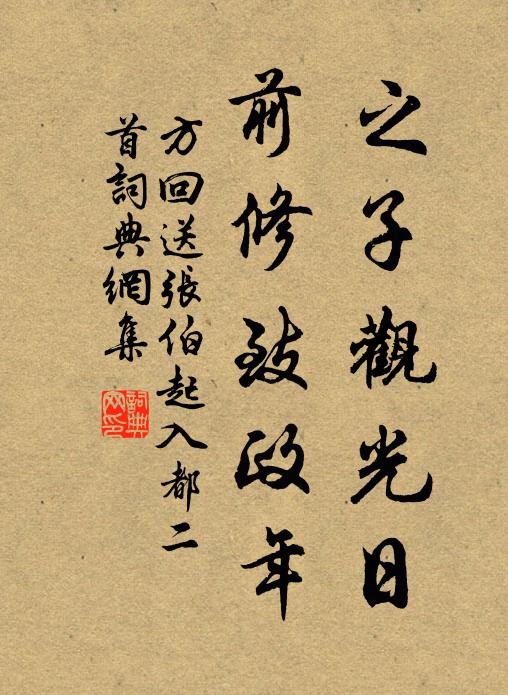 之子觀光日
前修致政年
方回送張伯起入都二
首詞典網集
詞典
网印